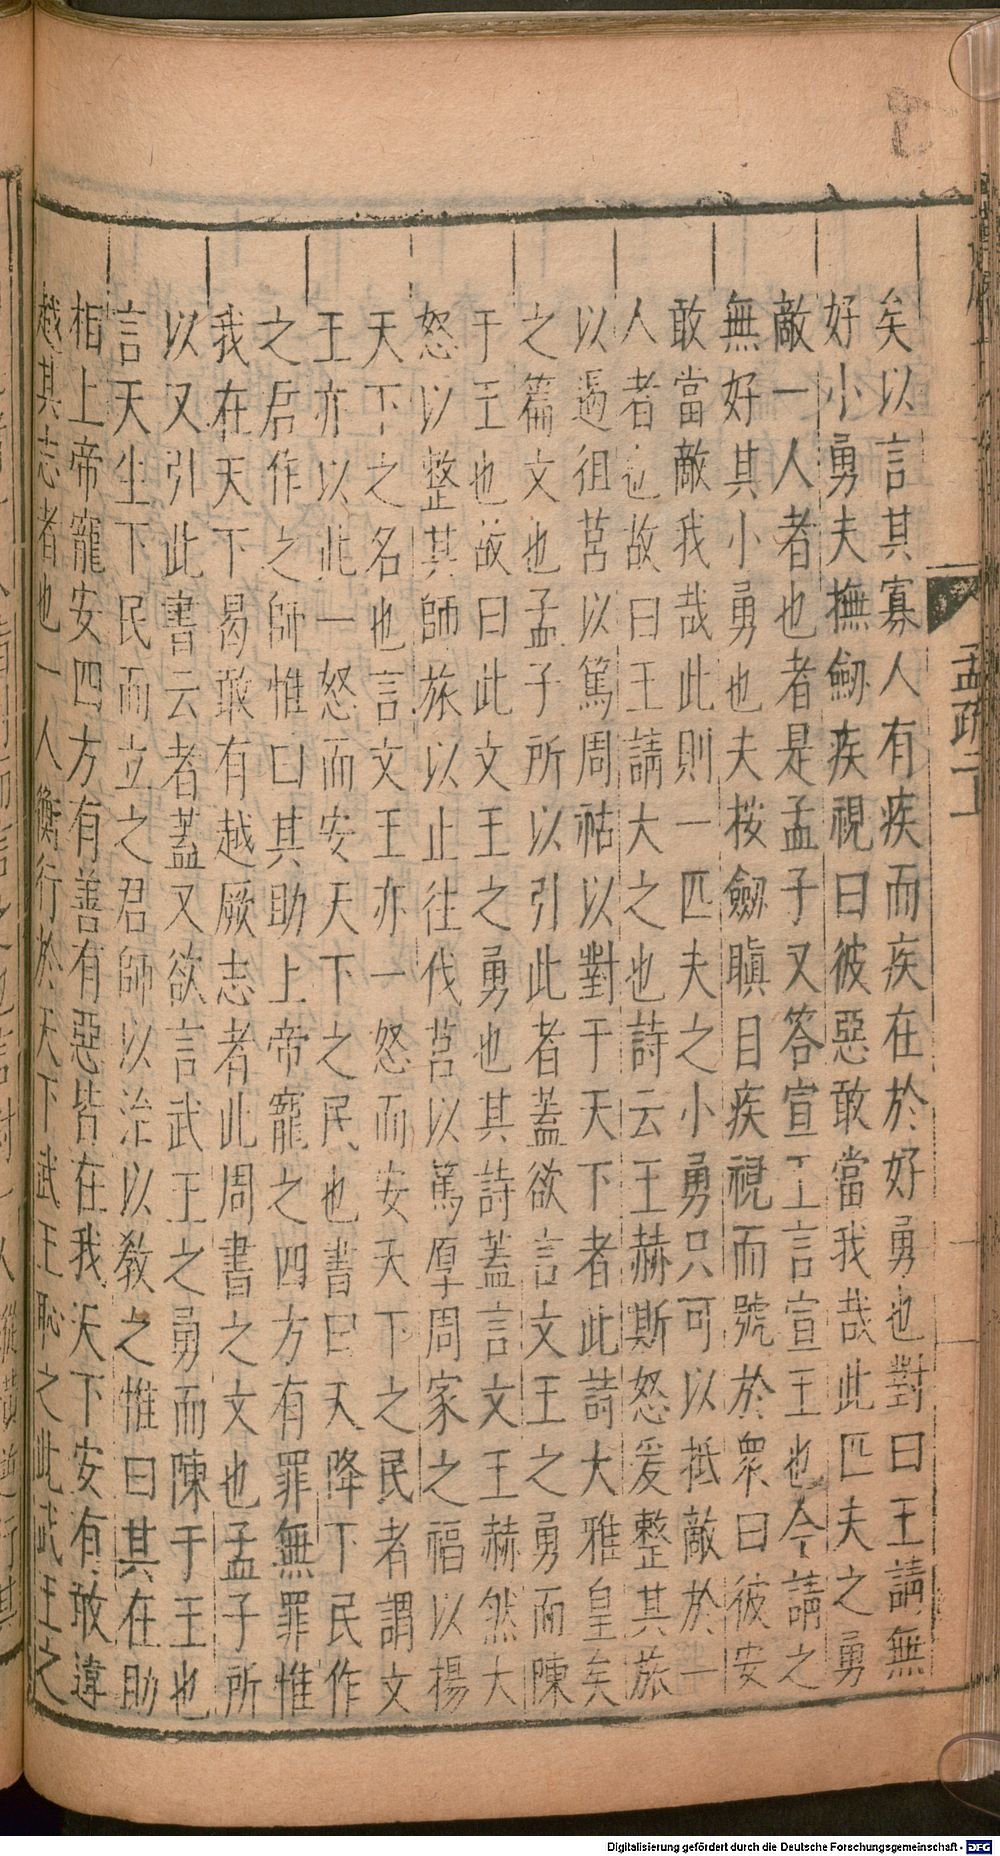 矣以言其寡人有疾而疾在於好勇也對曰王請無
好小勇夫撫劒疾視曰彼惡敢當我哉此匹夫之勇
敵一人者也者是孟子又答宣王言宣王也今請之
無好其小勇也夫按劒瞋目疾視而號於衆曰彼安
敢當敵我哉此則一匹夫之小勇只可以抵敵於一
人者也故曰王請大之也詩云王赫斯怒爰整其旅
以遏徂莒以篤周祜以對于天下者此詩大雅皇矣
之篇文也孟子所以引此者蓋欲言文王之勇而陳
于王也故曰此文王之勇也其詩蓋言文王赫然大
怒以整其師旅以止往伐莒以篤厚周家之福以揚
天下之名也言文王亦一怒而安天下之民者謂文
王亦以此一怒而安天下之民也書曰天降下民作
之君作之師惟曰其助上帝寵之四方有罪無罪惟
我在天下曷敢有越厥志者此周書之文也孟子所
以又引此書云者蓋又欲言武王之勇而陳于王也
言天生下民而立之君師以治以教之惟曰其在助
相上帝寵安四方有善有惡皆在我天下安有敢違
越其志者也一人衡行於天下武王恥之此武王之
孟疏二上
Digitalisierung gefördert durch die Deutsche Forschungsgemeinschaft - DFG